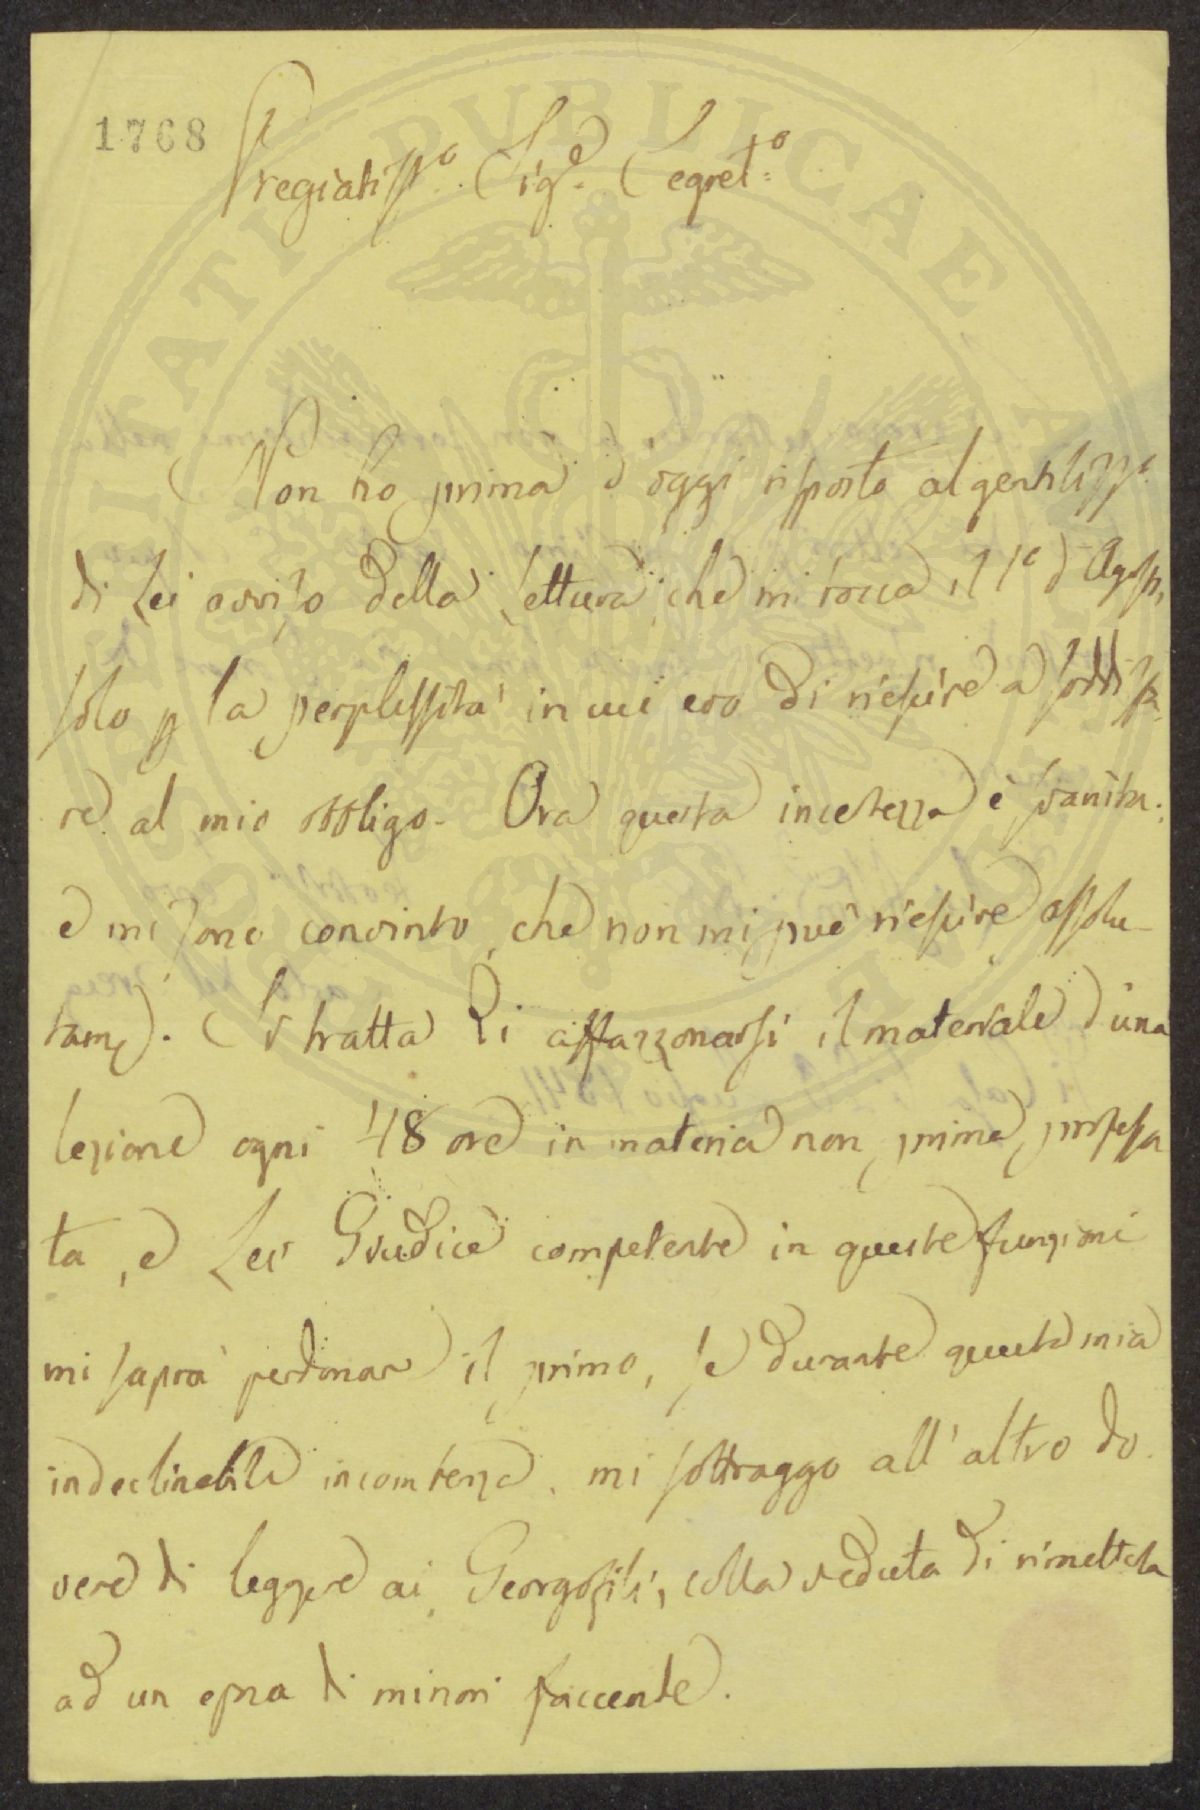 1768
Pregiatiss.º Sig.e Segret.º
Non ho prima d'oggi risposto al gentiliss.º
di Lei avviso della Lettura, che mi tocca il 1º d'Agosto,
solo p la perplessità in cui ero di riescire a soddisfa-
re al mio obbligo. Ora questa incertezza è svanita:
e mi sono convinto, che non mi può riescire assolu-
tame. Si tratta di affazzonarsi il materiale d'una
lezione ogni 48 ore in materia non prima professa
ta, e Lei Giudice competente in queste funzioni
mi saprà perdonare il primo, se durante questa mia
indeclinabile, mi sottraggo all'altro do-
vere di leggere ai Georgofili, colla veduta di rimetterla
ad un epoca di minori faccende.
PUBLICAE